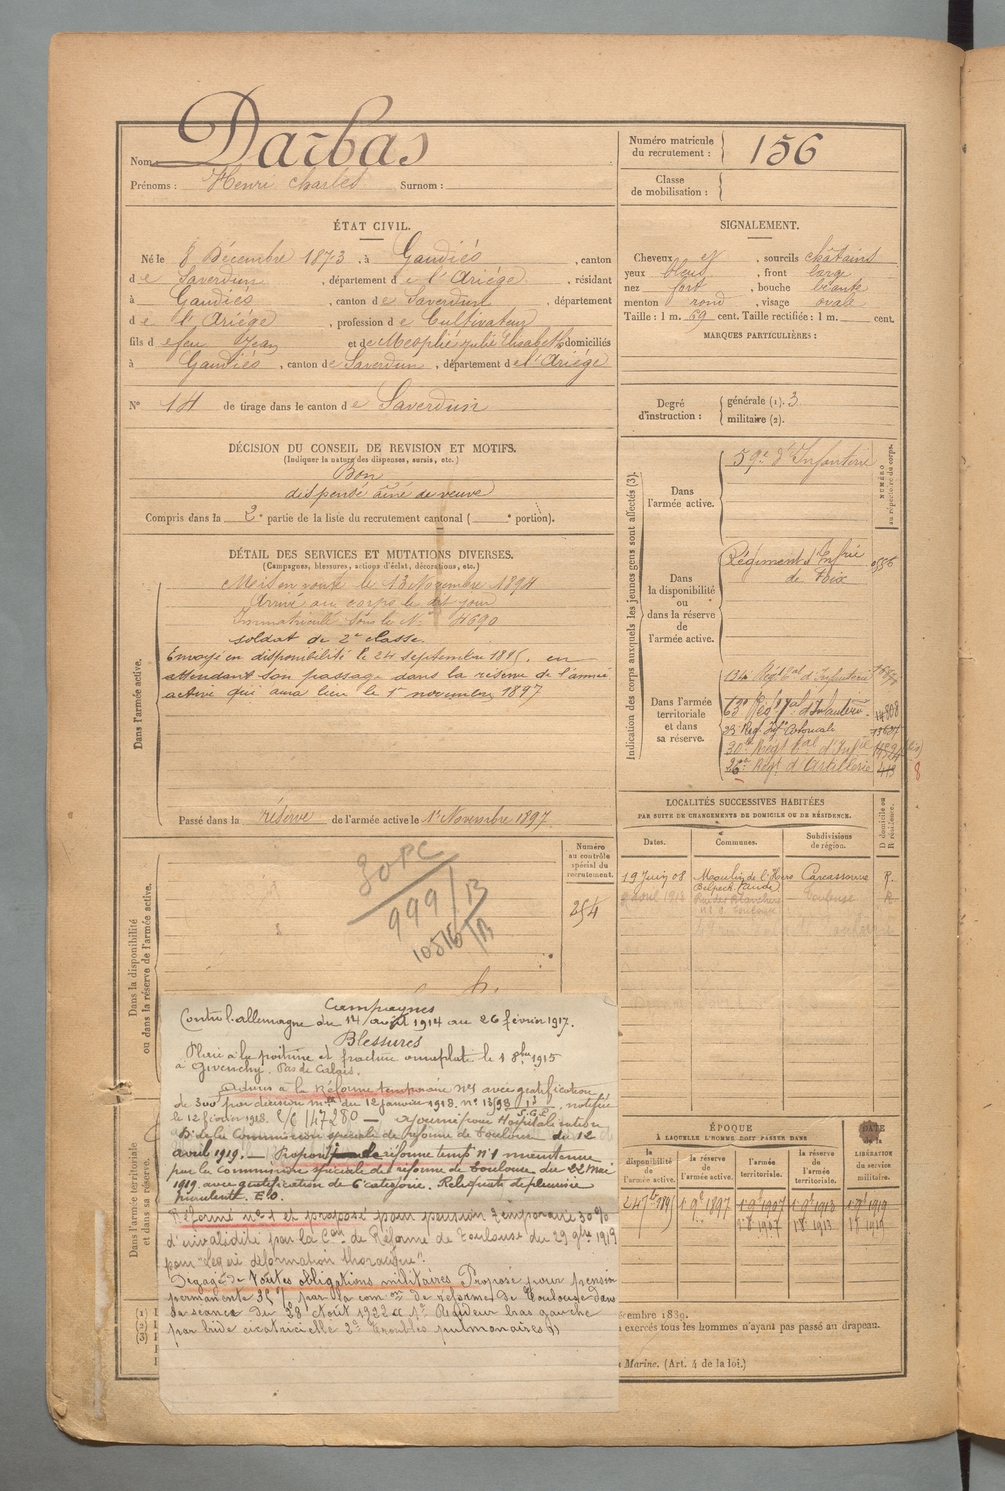 Nom : Darbas
Prénoms : Henri Charles Surnom :
Numéro matricule du recrutement : 156
Classe de mobilisation :
ÉTAT CIVIL.
Né le 8 Décembre 1873, à Gaudiés, canton
de Saverdun, département de l'Ariège, résidant
à Gaudiés, canton de Saverdun, département
de l'Ariège, profession de Cultivateur
fils de feu Jean et de Méophle Julie Elisabeth domiciliés
à Gaudiés, canton de Saverdun, département de l'Ariège
N° 14 de tirage dans le canton de Saverdun
SIGNALEMENT.
Cheveux et, sourcils châtains
yeux bleus, front large
nez fort, bouche béante
menton rond, visage ovale
Taille : 1 m. 69 cent. Taille rectifiée : 1 m. cent.
MARQUES PARTICULIÈRES :
Degré d'instruction : générale (1). 3
militaire (2).
DÉCISION DU CONSEIL DE REVISION ET MOTIFS.
(Indiquer la nature des dispenses, sursis, etc.)
Bon
dispensé aîné de veuve
Compris dans la 2e partie de la liste du recrutement cantonal ( e portion).
DÉTAIL DES SERVICES ET MUTATIONS DIVERSES.
(Campagnes, blessures, actions d'éclat, décorations, etc.)
Dans l'armée active.
Mis en route le 13 Novembre 1894
Arrivé au corps le dit jour
Immatriculé sous le N° 4690
soldat de 2e classe.
Envoyé en disponibilité le 24 septembre 1895. en
attendant son passage dans la réserve de l'armée
active qui aura lieu le 1er novembre 1897
Passé dans la réserve de l'armée active le 1r Novembre 1897
Indication des corps auxquels les jeunes gens sont affectés (3).
NUMÉRO au répertoire du corps.
Dans l'armée active.
59e d'Infanterie
Dans la disponibilité ou dans la réserve de l'armée active.
Régiment d'Infrie
de Foix
Dans l'armée territoriale et dans sa réserve.
134 Régt tal d'Infanterie
63e Régt tal d'Infanterie 14808
23 Reg. Infie Coloniale
30e Régt tal d'Infie
26e Régt d'Artillerie
8
LOCALITÉS SUCCESSIVES HABITÉES
PAR SUITE DE CHANGEMENTS DE DOMICILE OU DE RÉSIDENCE.
D domicile ou R résidence.
Dates. Communes. Subdivisions de région.
19 Juin 08 Moulin de l'Hers Carcassonne R.
Belpech (Aude)
avril 1914 Toulouse
Dans la disponibilité ou dans la réserve de l'armée active.
Numéro au contrôle spécial du recrutement.
254
30 PC
999/B
10516/B
Campagnes
Contre l'allemagne du 14 août 1914 au 26 février 1917.
Blessures
Plaie à la poitrine et fracture omoplate le 1 8bre 1915
à Givenchy. Pas de Calais.
Admis à la Réforme temporaire n°1 avec gratification
de 300f par décision mlle du 12 janvier 1918. n° 13198 notifiée
le 12 février 1918. 147280 — Ajourné pour Hospitalisation
Dn de la Commission spéciale de réforme de Toulouse du 12
avril 1919. — Proposé réforme temp. n°1 maintenue
par la commission spéciale de réforme de Toulouse du 22 Mai
1919. avec gratification de 6e catégorie. Reliquats de pleurésie
purulente. E.O.
Réformé n° 1 et proposé pour pension temporaire 30%
d'invalidité par la Con de Réforme de Toulouse du 29 9bre 1919
pour "légère déformation thoracique".
Dégagé de toutes obligations militaires Proposé pour pension
permanente 35% par la com on de réforme de Toulouse dans
sa séance du 28 Août 1922 1° Raideur bras gauche
par bride cicatricielle 2° Troubles pulmonaires
Dans l'armée territoriale et dans sa réserve.
ÉPOQUE
À LAQUELLE L'HOMME DOIT PASSER DANS
la disponibilité de l'armée active. la réserve de l'armée active. l'armée territoriale. la réserve de l'armée territoriale. DATE de la LIBÉRATION du service militaire.
24 7bre 1895 1 9e 1897 1 9e 1907 1 9e 1913 1 9e 1919
1 8e 1907 1 8e 1913 1 8e 1919
(1)
(2)
(3)
écembre 1889.
exercés tous les hommes n'ayant pas passé au drapeau.
Marine. (Art. 4 de la loi.)